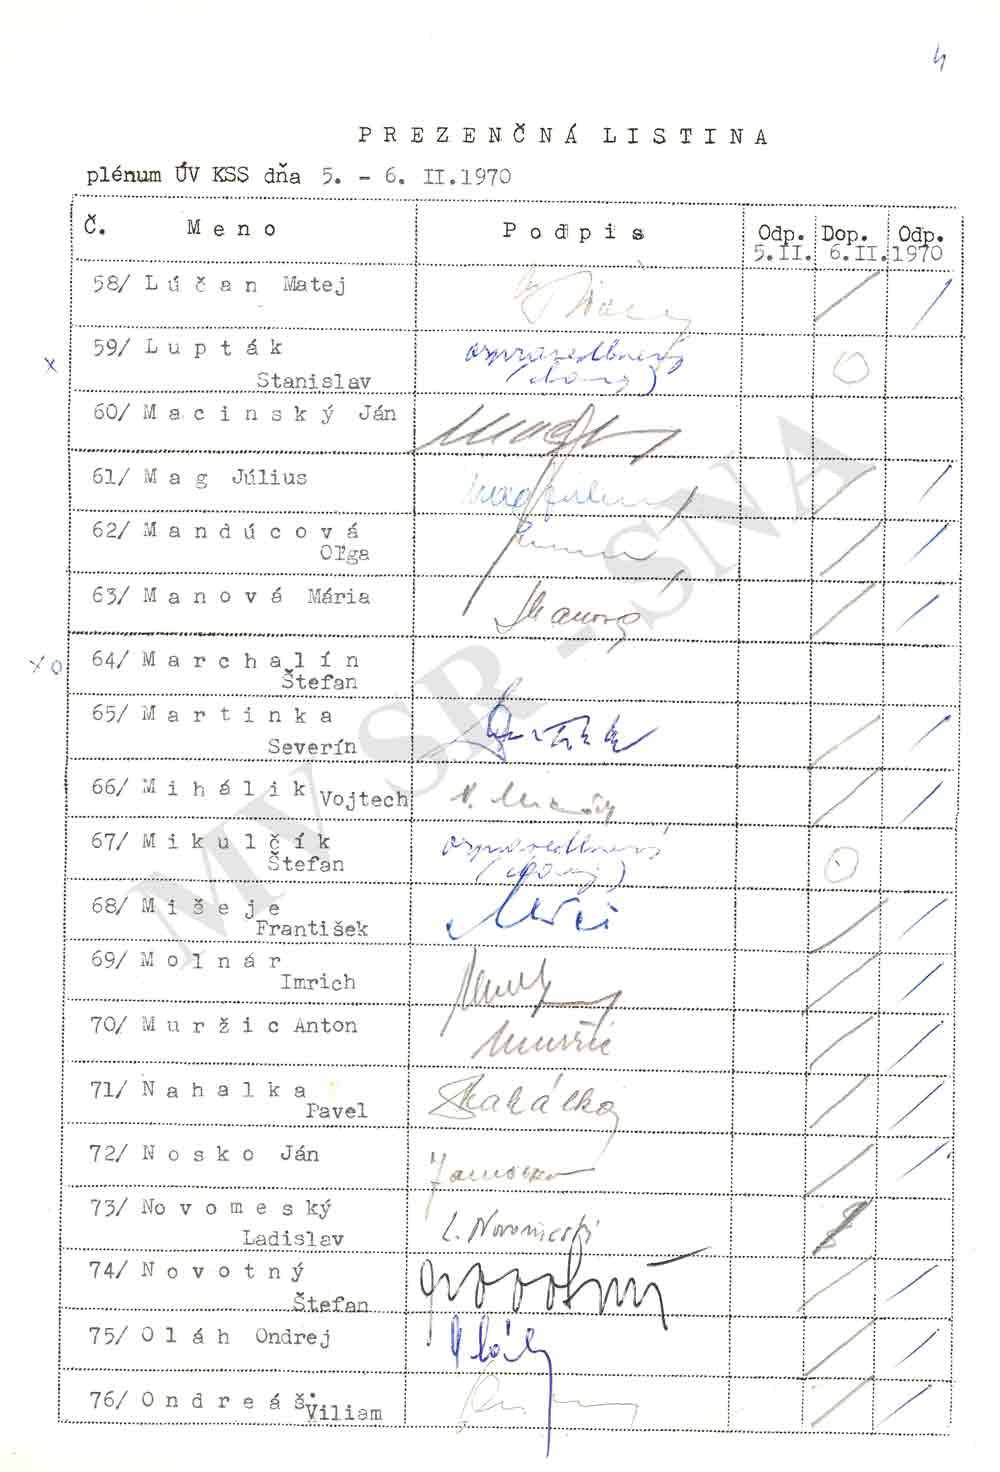 4
PREZENČNÁ LISTINA
plénum ÚV KSS dňa 5. - 6. II.1970
Č. Meno Podpis Odp. Dop. Odp.
5.II. 6.II.1970
58/ Lúčan Matej
59/ Lupták ospravedlnený
x Stanislav
60/ Macinský Ján
61/ Mag Július Mag Július
62/ Mandúcová
Oľga
63/ Manová Mária Manová
64/ Marchalín
xo Štefan
65/ Martinka
Severín
66/ Mihálik Vojtech
67/ Mikulčík ospravedlnený
Štefan
68/ Mišeje
František
69/ Molnár
Imrich
70/ Muržic Anton Muržic
71/ Nahalka
Pavel
72/ Nosko Ján
73/ Novomeský
Ladislav L. Novomeský
74/ Novotný Novotný
Štefan
75/ Oláh Ondrej
76/ Ondreáš
Viliam
MV SR - SNA